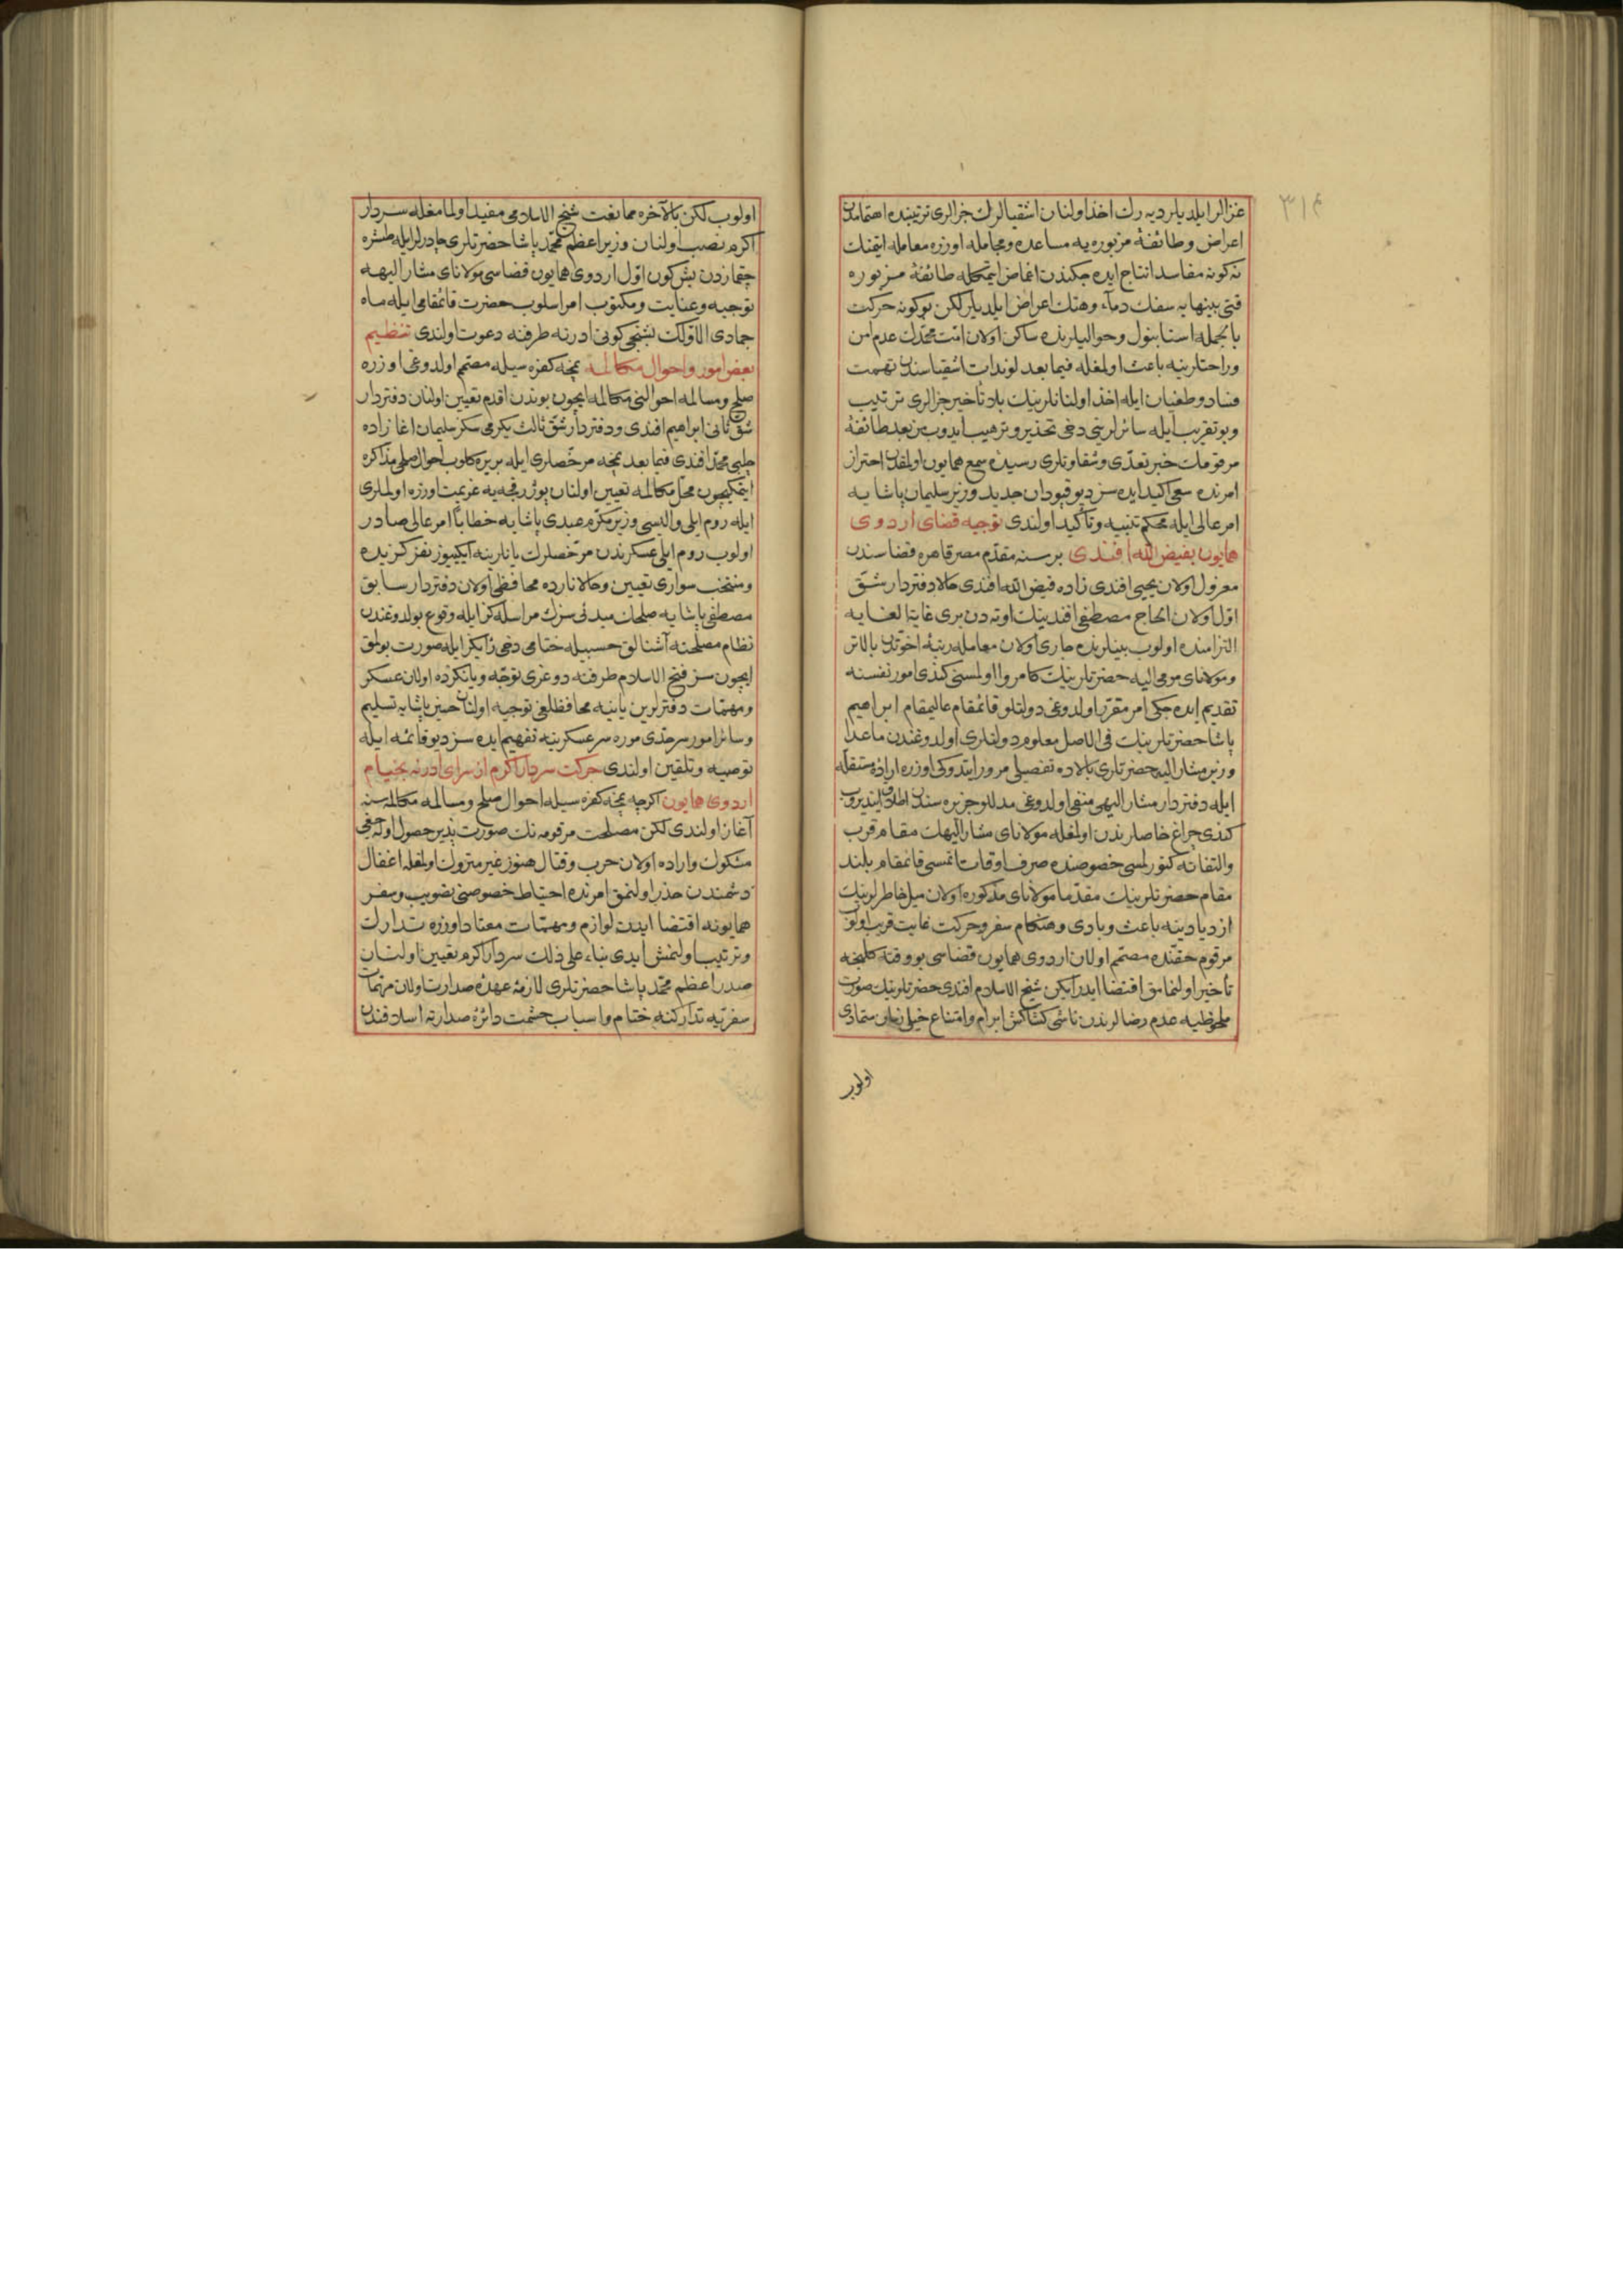 ٣١٤
غزالر ايلديلر ديه رك اخذ اولنان اشقيالرك جزالرى ترتيبنده اهتمامدن
اعراض وطائفۀ مزبوره يه مساعده ومجامله اوزره معامله ايتمنك
نه كونه مفاسد انتاج ايده جكندن اغماض ايتمكله طائفۀ مزبوره
قتى بينهايه سفك دمآء وهتك اعراض ايلديلر لكن بو كونه حركت
بالجمله استانبول وحواليلرنده ساكن اولان امّت محمّدك عدم امن
وراحتلرينه باعث اولمغله فيما بعد لوندات اشقياسندن تهمت
فساد وطغيان ايله اخذ اولنانلرينك بلا تأخير جزالرى ترتيب
وبو تقريب ايله سائرلرينى دخى تحذير وترهيب ايدوب من بعد طائفۀ
مرقومه‌نك خبر تعدّى وشقاوتلرى رسيدۀ سمع همايون اولمقدن احتراز
امرنده سعى اكيد ايده سز ديو قپودان جديد وزير سليمان پاشايه
امر عالى ايله محكم تنبيه وتأكيد اولندى توجيه قضاى اردوى
همايون بفيض الله افندى بر سنه مقدّم مصر قاهره قضاسندن
معزول اولان يحيى افندى زاده فيض الله افندى حالا دفتردار شقّ
اوّل اولان الحاج مصطفى افندينك اوته دن برى غاية الغايه
التزامنده اولوب بينلرنده جارى اولان معامله رتبۀ اخوّتدن بالاتر
ومولاناى مومى اليه حضرتلرينك كامروا اولمسنى كندى امور نفسنه
تقديم ايده جكى امر مقرّر اولدوغى دولتلو قائمقام عاليمقام ابراهيم
پاشا حضرتلرينك فى الاصل معلوم دولتلرى اولدوغندن ماعدا
وزير مشار اليه حضرتلرى بالاده تفصيلى مرور ايتدوكى اوزره ارادۀ مستقلّه
ايله دفتردار مشار اليهى منفى اولدوغى مدللو جزيره سندن اطلاق ايتديروب
كندى چراغ خاصلرندن اولمغله مولاناى مشار اليهك مقام قرب
والتفاته كتورلمسى خصوصنده صرف اوقات ايتمسى قائمقام بلند
مقام حضرتلرينك مقدّما مولاناى مذكوره اولان ميل خاطرلرينك
ازديادينه باعث وبادى وهنكام سفر وحركت غايت قريب اولوب
مرقوم حقّنده مصمّم اولان اردوى همايون قضاسى بو وقته كلنجه
تأخير اولنمامق اقتضا ايدر ايكن شيخ الاسلام افندى حضرتلرينك صورت
ملحوظيه عدم رضالرندن ناشى كشاكش ابرام وامتناع خيلى زمان متمادى
اولوب
اولوب لكن بالآخره ممانعت شيخ الاسلامى مفيد اولمامغله سردار
اكرم نصب اولنان وزير اعظم محمّد پاشا حضرتلرى چادرلر ايله طشره
چقمازدن بش كون اوّل اردوى همايون قضاسى مولاناى مشار اليهه
توجيه وعنايت ومكتوب امر اسلوب حضرت قائمقامى ايله ماه
جمادى الاوّلك بشنجى كونى ادرنه طرفنه دعوت اولندى تنظيم
بعض امور واحوال مكالمه نمچه كفره سيله مصمّم اولدوغى اوزره
صلح ومسالمه احوالنى مكالمه ايچون بوندن اقدم تعيين اولنان دفتردار
شقّ ثانى ابراهيم افندى ودفتردار شقّ ثالث يكرمى سكز سليمان اغا زاده
چلبى محمّد افندى فيما بعد نمچه مرخّصلرى ايله بر يره كلوب احوال صلحى مذاكره
ايتمكيچون محلّ مكالمه تعيين اولنان پوژرفچه يه عزيمت اوزره اولملرى
ايله روم ايلى واليسى وزير مكرّم عبدى پاشايه خطابًا امر عالى صادر
اولوب روم ايلى عسكرندن مرخّصلرك يانلرينه ايكيوز نفر كزيده
ومنتخب سوارى تعيين وحالا نارده محافظى اولان دفتردار سابق
مصطفى پاشايه صلحك مبدئى سزك مراسله كز ايله وقوع بولدوغندن
نظام مصلحته آشنالق حسبيله ختامى دخى رأيكز ايله صورت بولمق
ايچون سز فتح الاسلام طرفنه دوغرى توجّه ويانكزده اولان عسكر
ومهمّات دفترلرين يانيه محافظلغى توجيه اولنان حسين پاشايه تسليم
وسائر امور سرحدّى موره سرعسكرينه تفهيم ايده سز ديو قائمه ايله
توصيه وتلقين اولندى حركت سردار اكرم از سراى ادرنه بخيام
اردوى همايون اكرچه نمچه كفره سيله احوال صلح ومسالمه مكالمه سنه
آغاز اولندى لكن مصلحت مرقومه نك صورت پذير حصول اوله جغى
مشكوك واراده اولان حرب وقتال هنوز غير متروك اولمغله اغفال
دشمندن حذر اولنمق امرنده احتياط خصوصنى تصويب وسفر
همايونه اقتضا ايدن لوازم ومهمّات معتاد اوزره تدارك
وترتيب اولنمش ايدى بناء على ذلك سردار اكرم تعيين اولنان
صدر اعظم محمّد پاشا حضرتلرى لازمۀ عهدۀ صدارت اولان مهمّات
سفريّه تداركنه ختام واسباب حشمت دائرۀ صدارته اسلافندن